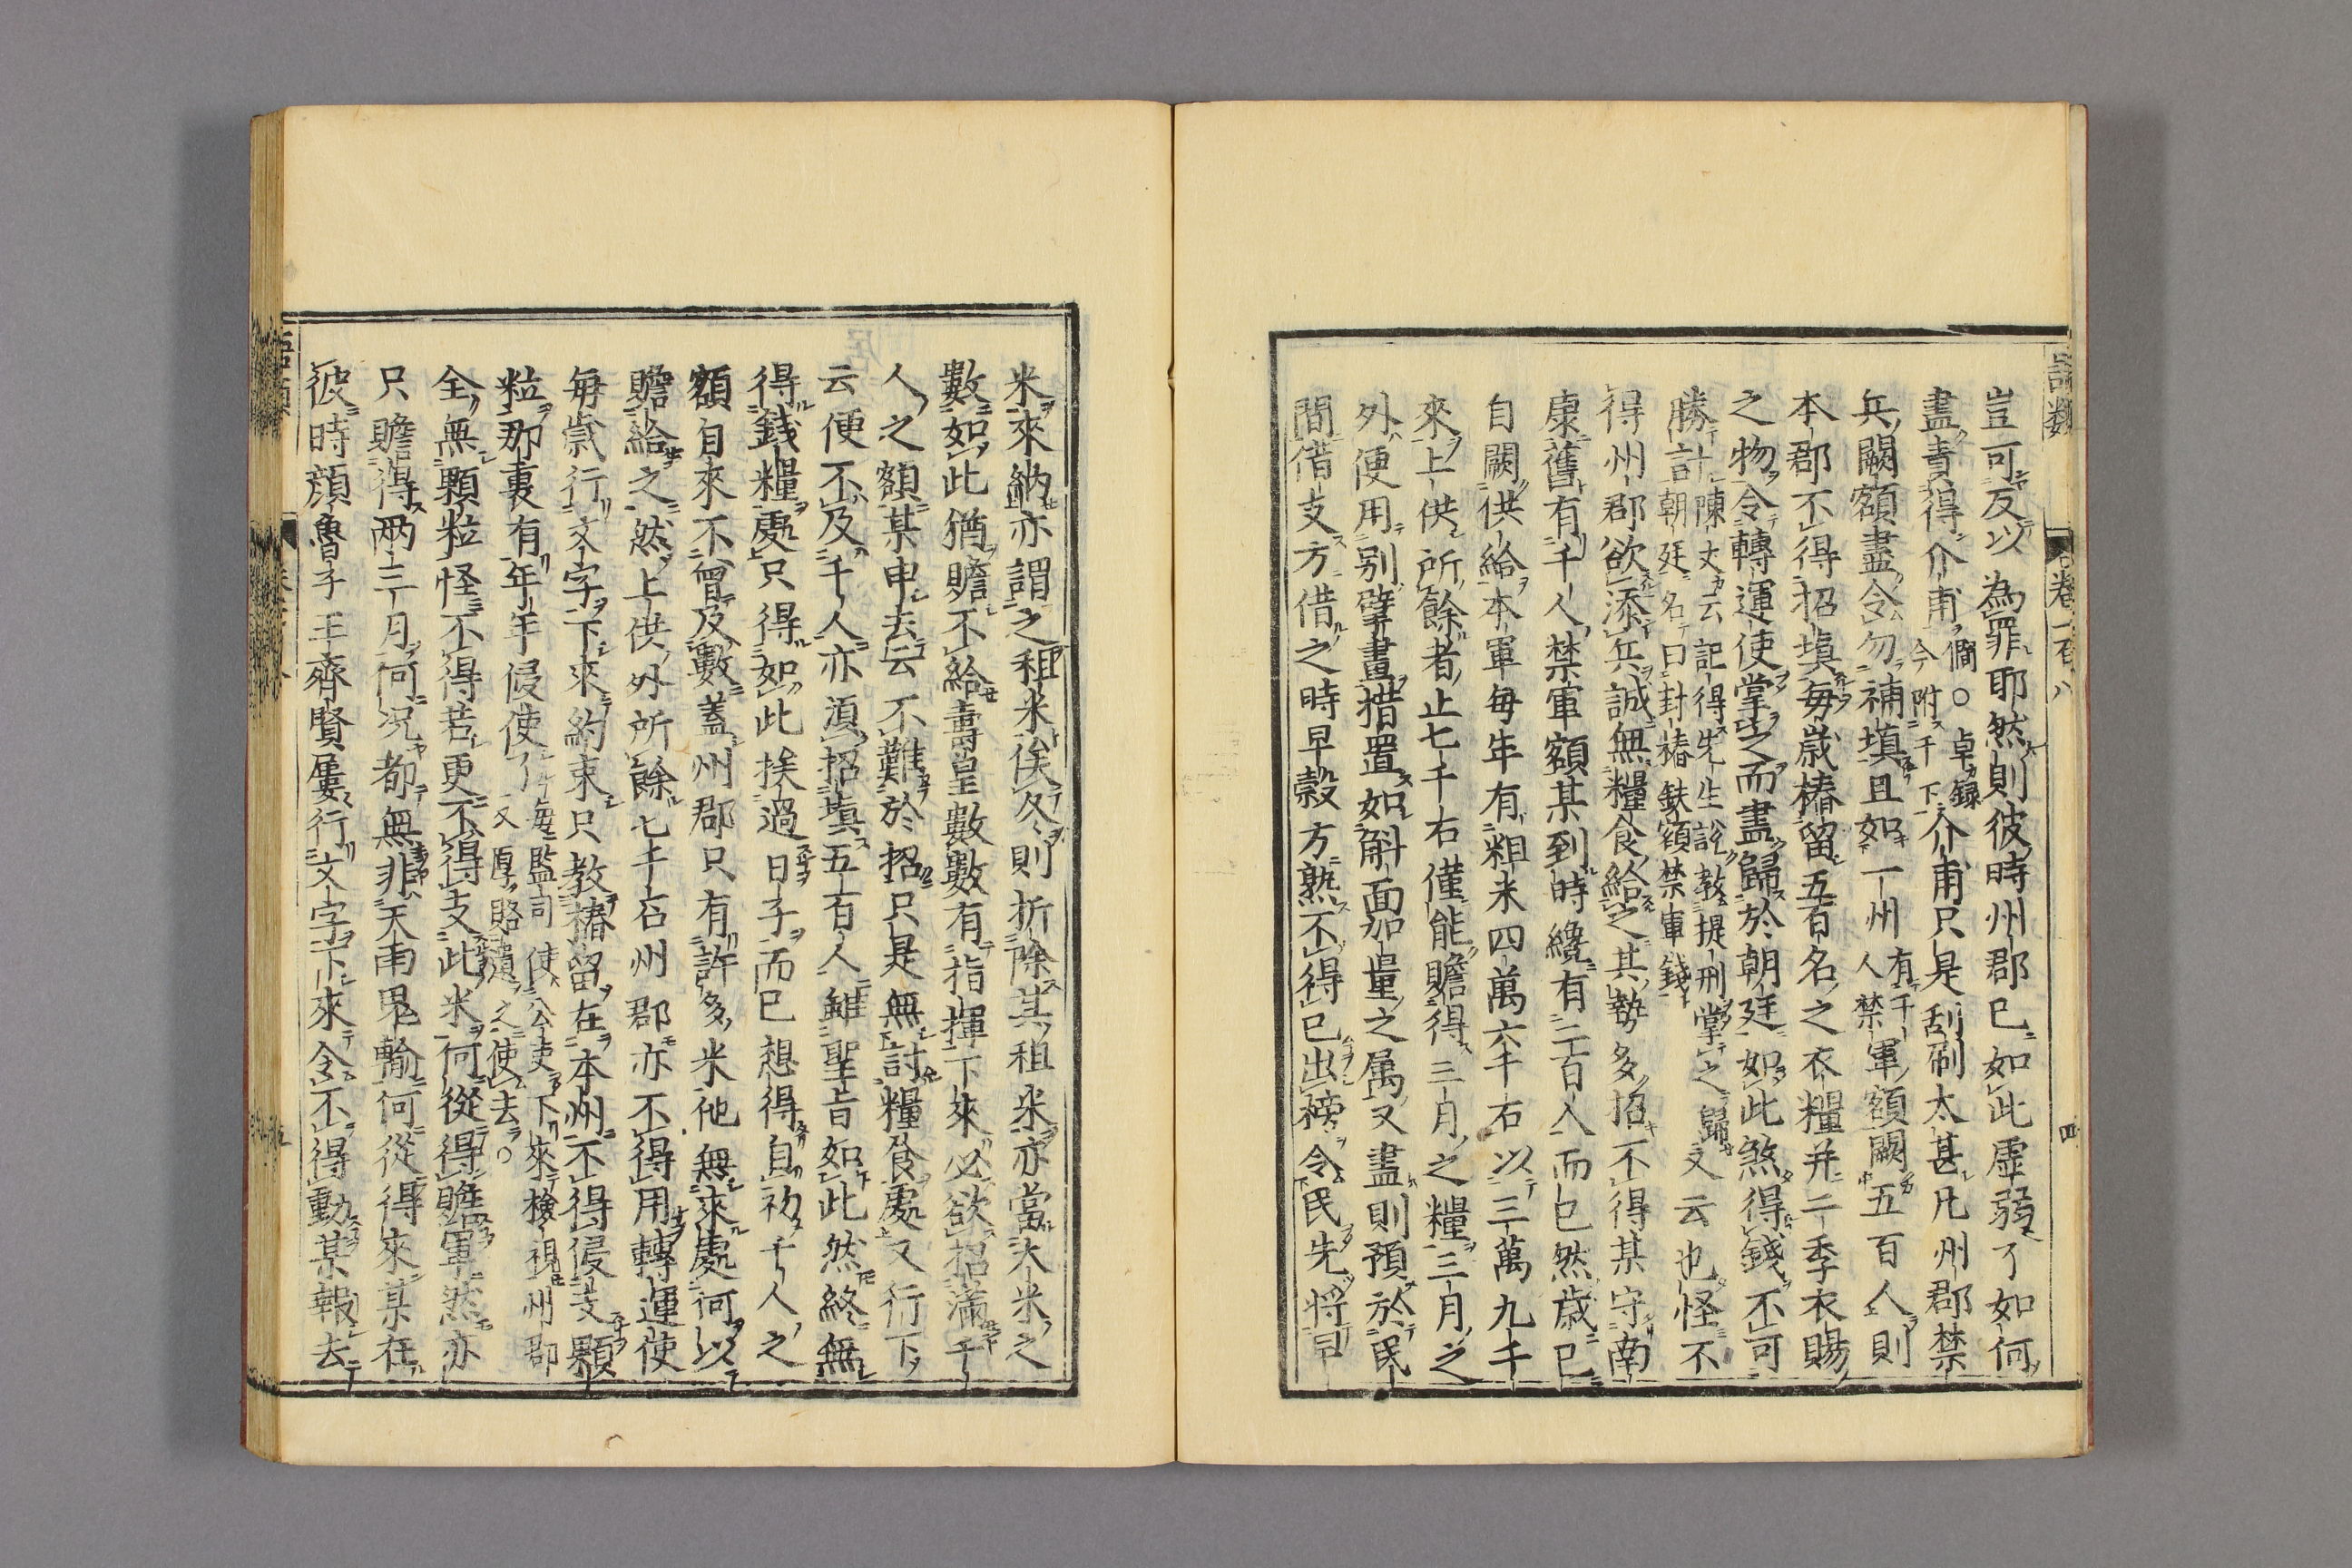 語類
卷一百八
四
豈可反以為罪耶然則彼時州郡已如此虛弱了如何
盡責得介甫僩○卓錄今附千下介甫只是刮刷太甚凡州郡禁
兵闕額盡令勿補填且如一州有千人禁軍額闕五百人則
本郡不得招填每歲樁留五百名之衣糧并二季衣賜
之物令轉運使掌之而盡歸於朝廷如此煞得錢不可
勝計陳丈云記得先生說教提刑掌之歸朝廷名曰封樁缺額禁軍錢又云也怪不
得州郡欲添兵誠無糧食給之其勢多招不得某守南
康舊有千人禁軍額某到時纔有二百人而已然歲已
自闕供給本軍每年有租米四萬六千石以三萬九千
來上供所餘者止七千石僅能贍得三月之糧三月之
外便用別擘畫措置如斛面加量之属又盡則預於民
間借支方借之時早穀方熟不得已出榜令民先將早
米來納亦謂之租米俟久則折除其租米亦當大米之
數如此猶贍不給壽皇數數有指揮下來必欲招滿千
人之額某申去云不難於招只是無討糧食處又行下
云便不及千人亦須招填五百人雖聖旨如此然終無
得錢糧處只得如此挨過日子而已想得自初千人之
額自來不曾及數蓋州郡只有許多米他無來處何以
贍給之然上供外所餘七千石州郡亦不得用轉運使
每歲行文字下來約束只教樁留在本州不得侵支顆
粒那裏有年年侵使了每監司使公吏下來檢視州郡又厚賂遺之使去○
全無顆粒怪不得若更不得支此米何從得贍軍然亦
只贍得兩三月何況都無非天雨鬼輸何從得來某在
彼時顏魯子王齊賢屢行文字下來令不得動某報去